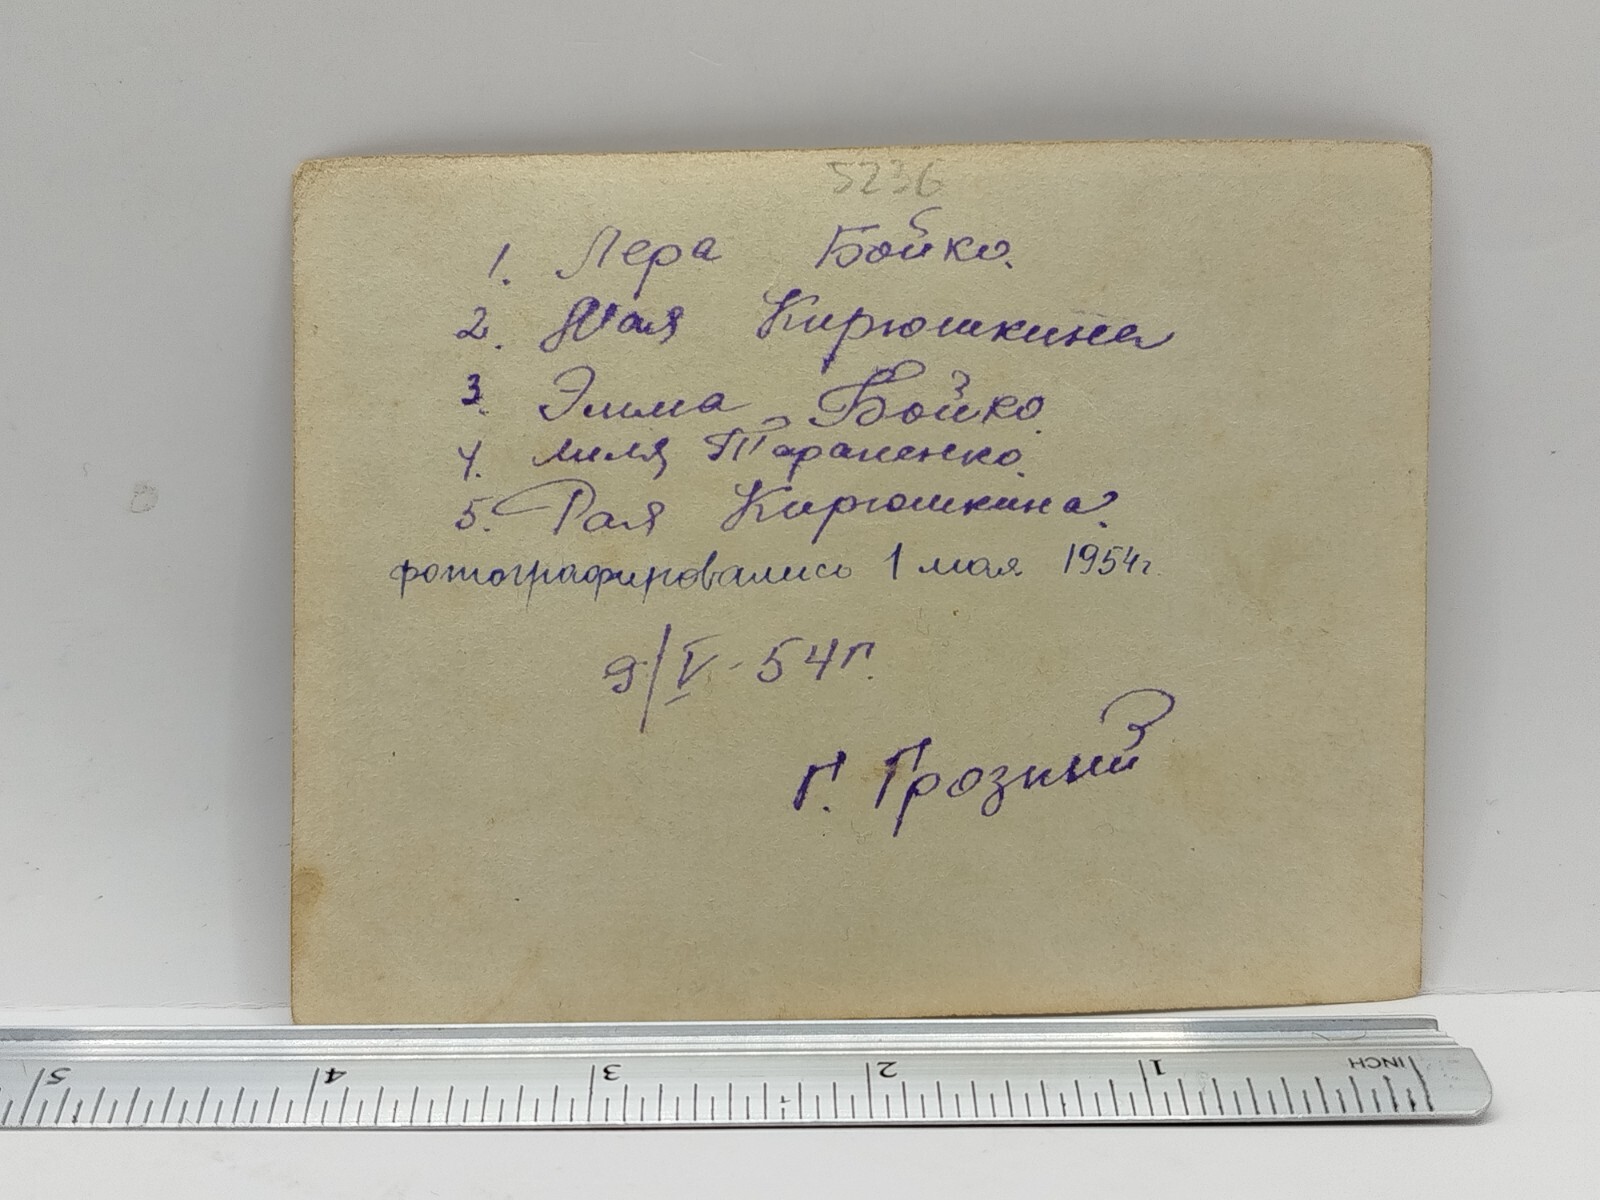 5236
1. Лера Бойко.
2. Мая Кирюшкина
3. Эмма Бойко.
4. Миля Тараненко.
5. Рая Кирюшкина.
фотографировались 1 мая 1954г.
9/V-54г.
г. Грозный
5 4 3 2 1 INCH